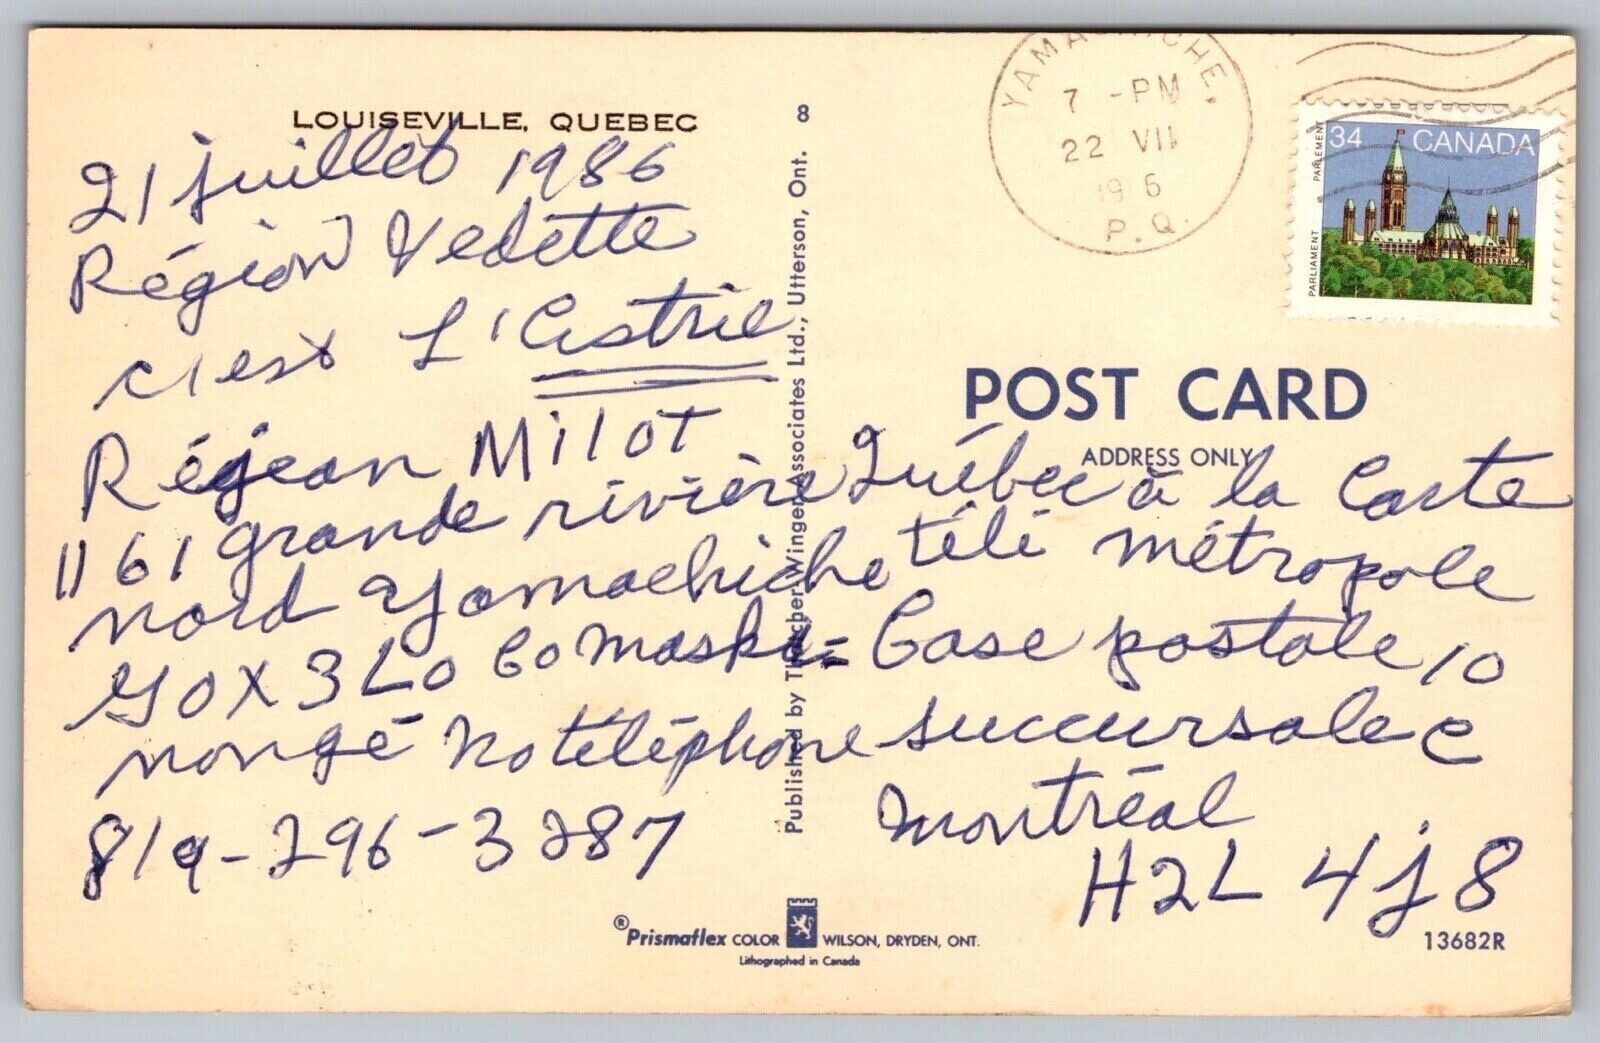 LOUISEVILLE, QUEBEC
8
21 juillet 1986
Région Vedette
c'est L'Estrie
Réjean Milot
1161 grande rivière
nord Yamachiche
G0X 3L0 Co Maski=
nongé No téléphone
819-296-3287
Published by Thatcher/Vinger Associates Ltd., Utterson, Ont.
YAMACHICHE,
7 -PM
22 VII
19 6
P.Q.
34 CANADA
PARLIAMENT PARLEMENT
POST CARD
ADDRESS ONLY
Québec à la Carte
télé métropole
Case postale 10
succursale C
Montréal
H2L 4J8
®Prismaflex COLOR WILSON, DRYDEN, ONT.
Lithographed in Canada
13682R